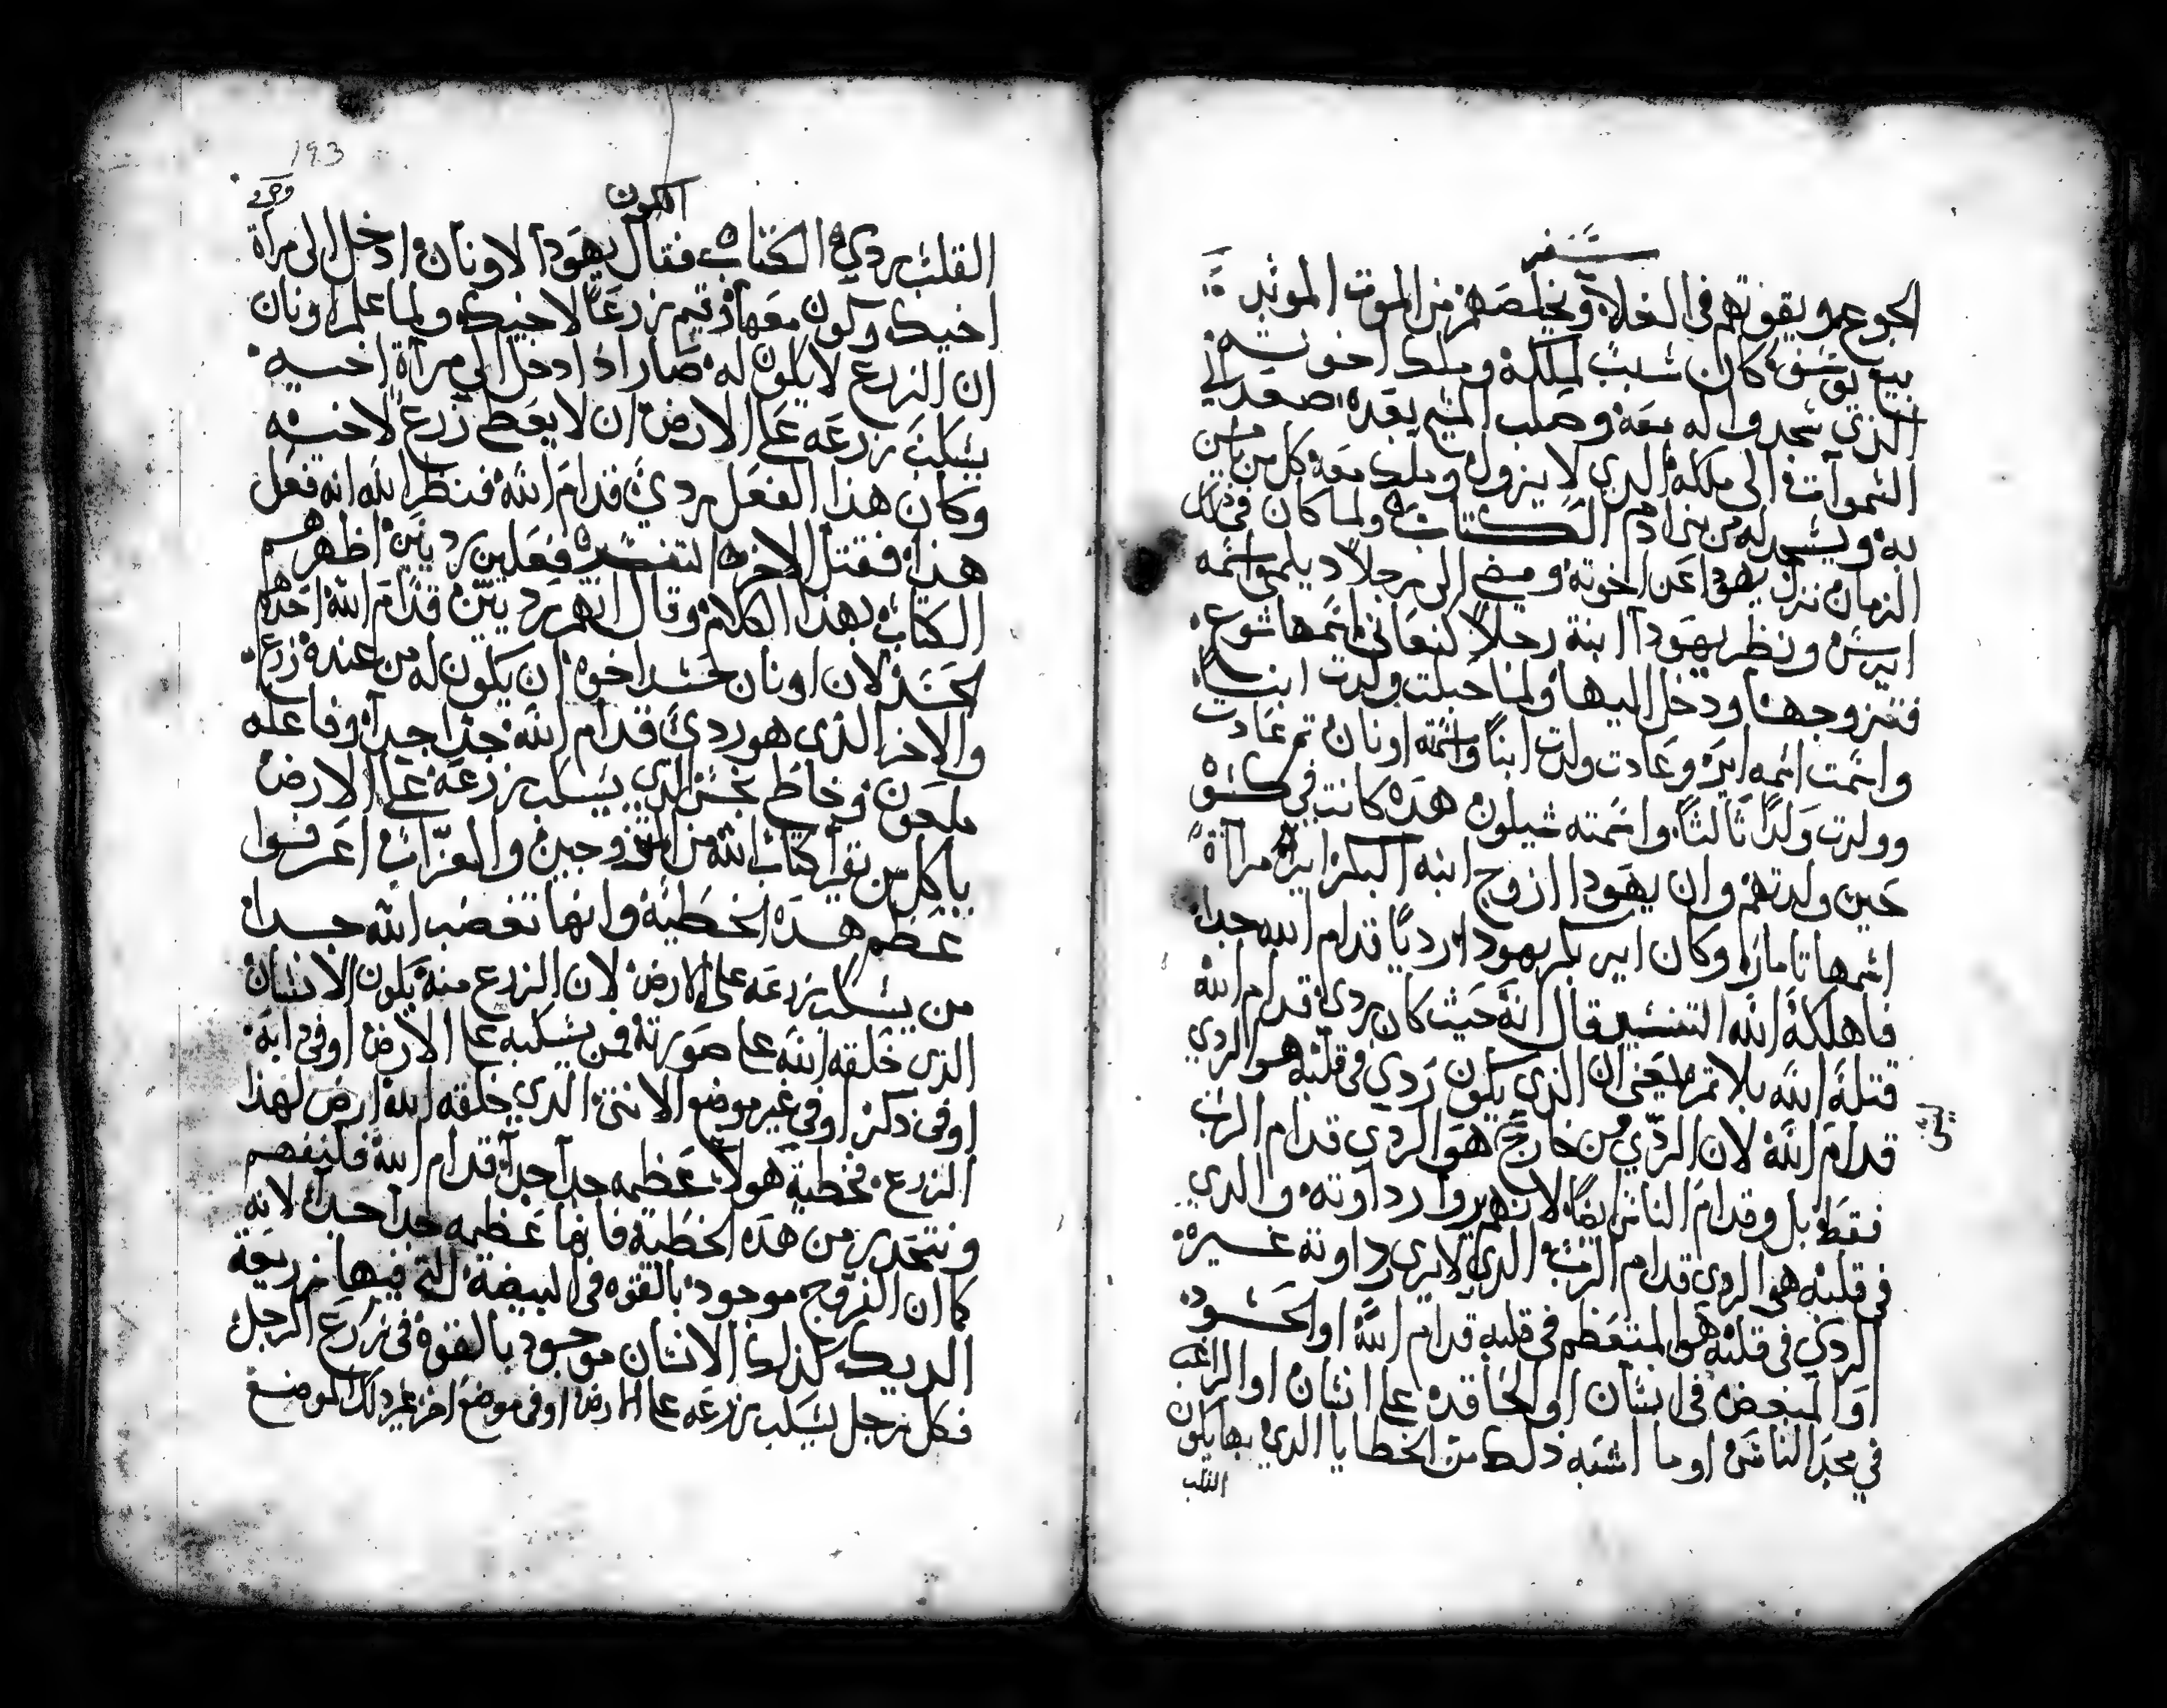 سفر
الجوع ويقوتهم في الغلاء ويخلصهم من الموت الموبد
بيع يوسف كان سبب لملكه وملك اخوته
الذي سجدوا له معه وصلب المسيح بعده صعد الي
السموات الى ملكه الدي لا يزول وملك معه كل من يامن
به ويسجد له من بني ادم الكتاب ولما كان في ذلك
الزمان نزل يهودا عن اخوته ومضي الى رجلا ديلمي اسمه
ايرس ونظر يهودا ابنة رجلا كنعاني اسمها شوع
فتزوجها ودخل اليها ولما حبلت ولدت ابنا
واسمت اسمه اير وعادت ولدت ابنا واسمته اونان تم عادت
وولدت ولدا تالتا واسمته شيلون هده كانت في
حين ولدتهم وان يهودا ازوج ابنه البكر اير مرآة
اسمها تامار وكان اير بكر يهودا رديا قدام الله جدا
فاهلكه الله التفسير قال انه حيث كان ردي قدام الله
قتله الله بلا تمر يعني ان الذي يكون ردي في قلبه هو الردي
قدام الله لان الردي من خارج هو الردي قدام الرب
فقط بل وقدام الناس ايضا لانهم يروا رداوته والدي
في قلبه هو الردي قدام الرب الدي لا يرى رداوته غيره
الردي في قلبه هو المتعظم في قلبه قدام الله او الحسود
او المبغض في انسان او الحاقد على انسان او الراغب
في مجد الناس او ما اشبه ذلك من الخطايا الدي بها يكون
القلب
193
الكون
القلب ردي الكتاب فقال يهودا لاونان ادخل الى مرآة
اخيك وكون معها وتيم زرعا لاخيك ولما علم اونان
ان الزرع لا يكون له صار اذا دخل الي مرآة اخيه
يسكب زرعه على الارض ان لا يعطي زرع لاخيه
وكان هذا الفعل ردي قدام الله فنظر الله انه فعل
هذا فقتل الاخر التفسير فعلين رديين اظهرهم
الكتاب بهذا الكلام وقال انهم رديين قدام الله احدهم
الحسد لان اونان حسد اخوه ان يكون له من عنده زرع
والاخر الذي هو ردي قدام الله جدا جدا وفاعله
ملعون وخاطي نجس الذي يسكب زرعه على الارض
يا كل من يقرا كتاب الله من المتزوجين والعزاب اعرفوا
عظم هذه الخطية وانها تغضب الله جدا
من يسكب زرعه على الارض لان الزرع منه يكون الانسان
الذي خلقه الله على صورته فمن يسكبه على الارض او في دابة
او في دكر او في غير موضع الانتى الدي خلقه الله ارض لهدا
الزرع فخطية هولا عظيمه جدا جدا قدام الله فليفهم
ويتحدر من هده الخطية فانها عظيمه جدا جدا لانه
كما ان الفروج موجود بالقوه في البيضة التي فيها زريعة
الديك كذلك الانسان موجود بالقوة في زرع الرجل
فكل رجل يسكب زرعه على الارض او في موضع اخر غير دلك الموضع